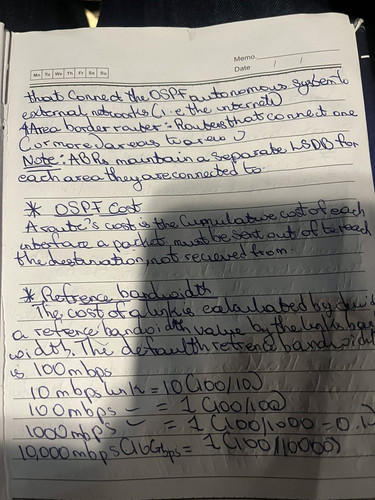 Memo
Mo Tu We Th Fr Sa Su
Date / /
that connect the OSPF autonomous system to
external networks (i.e the internet)
4 Area border router:- Routers that connect one
(or more) areas to area 0
Note: ABRs maintain a separate LSDB for
each area they are connected to.
* OSPF Cost
A route's cost is the cumulative cost of each
interface a packet must be sent out of to reach
the destination, not recieved from.
* Refrence bandwidth
The cost of a link is calculated by
a refrence bandwidth value by the links
width. The default refrence bandwidth
is 100 mbps
10 mbps link = 10 (100/10)
100 mbps — = 1 (100/100)
1000 mbps — = 1 (100/1000 = 0.1)
10,000 mbps (10Gbps = 1 (100/10000)